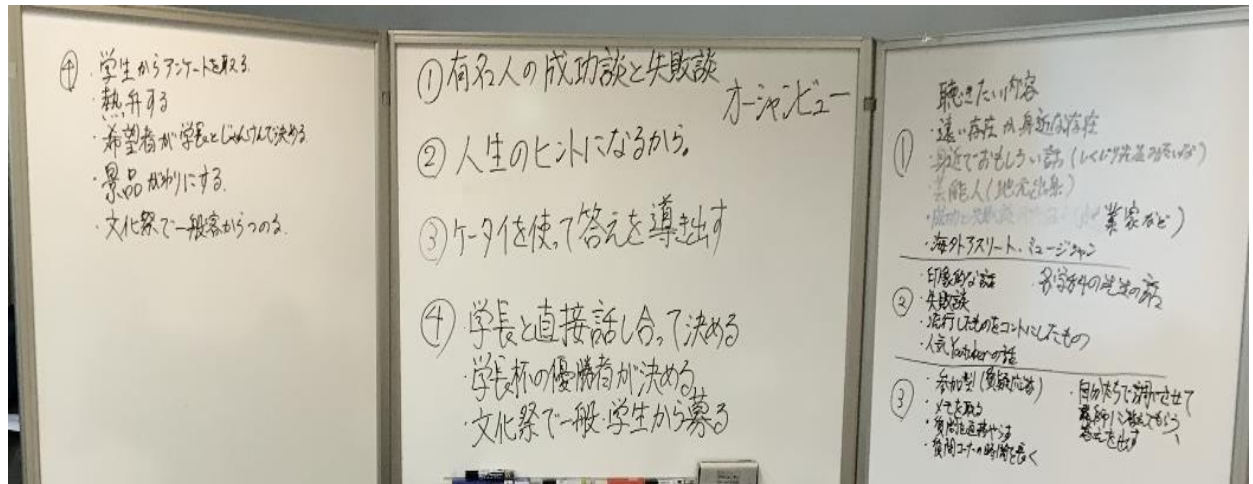 ④ ・学生からアンケートを取る
・熱弁する
・希望者が学長とじゃんけんで決める
・景品がわりにする
・文化祭で一般客からつのる
①有名人の成功談と失敗談
オーシャンビュー
②人生のヒントになるから。
③ケータイを使って答えを導き出す
④・学長と直接話し合って決める
・学長杯の優勝者が決める
・文化祭で一般・学生から募る
聴きたい内容
①
・遠い存在か身近な存在
・身近でおもしろい話(しくじり先生みたいな)
・芸能人(地元出身)
・成功と失敗 業家など)
・海外アスリート・ミュージシャン
②
・印象的な話 ・各学科の先生の話
・失敗談
・流行したものをコントにしたもの
・人気Youtuberの話
③
・参加型(質疑応答)
・メモを取る
・質問
・質問コーナーの時間を長く
・自分たちで させて
答えを出す